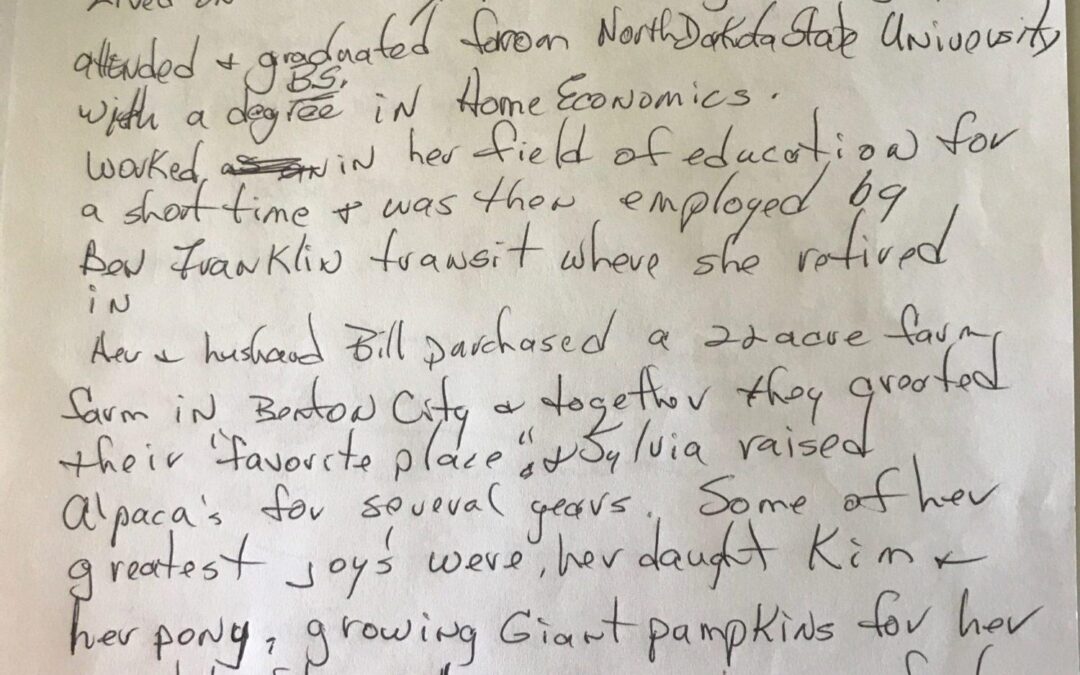 attended + graduated from North Dakota State University
B.S.
with a degree in Home Economics.
worked in her field of education for
a short time + was then employed by
Ben Franklin transit where she retired
in
Her + husband Bill purchased a 22 acre farm
farm in Benton City & together they created
their "favorite place" & Sylvia raised
Alpaca's for several years. Some of her
greatest joy's were, her daught Kim +
her pony, growing Giant pumpkins for her